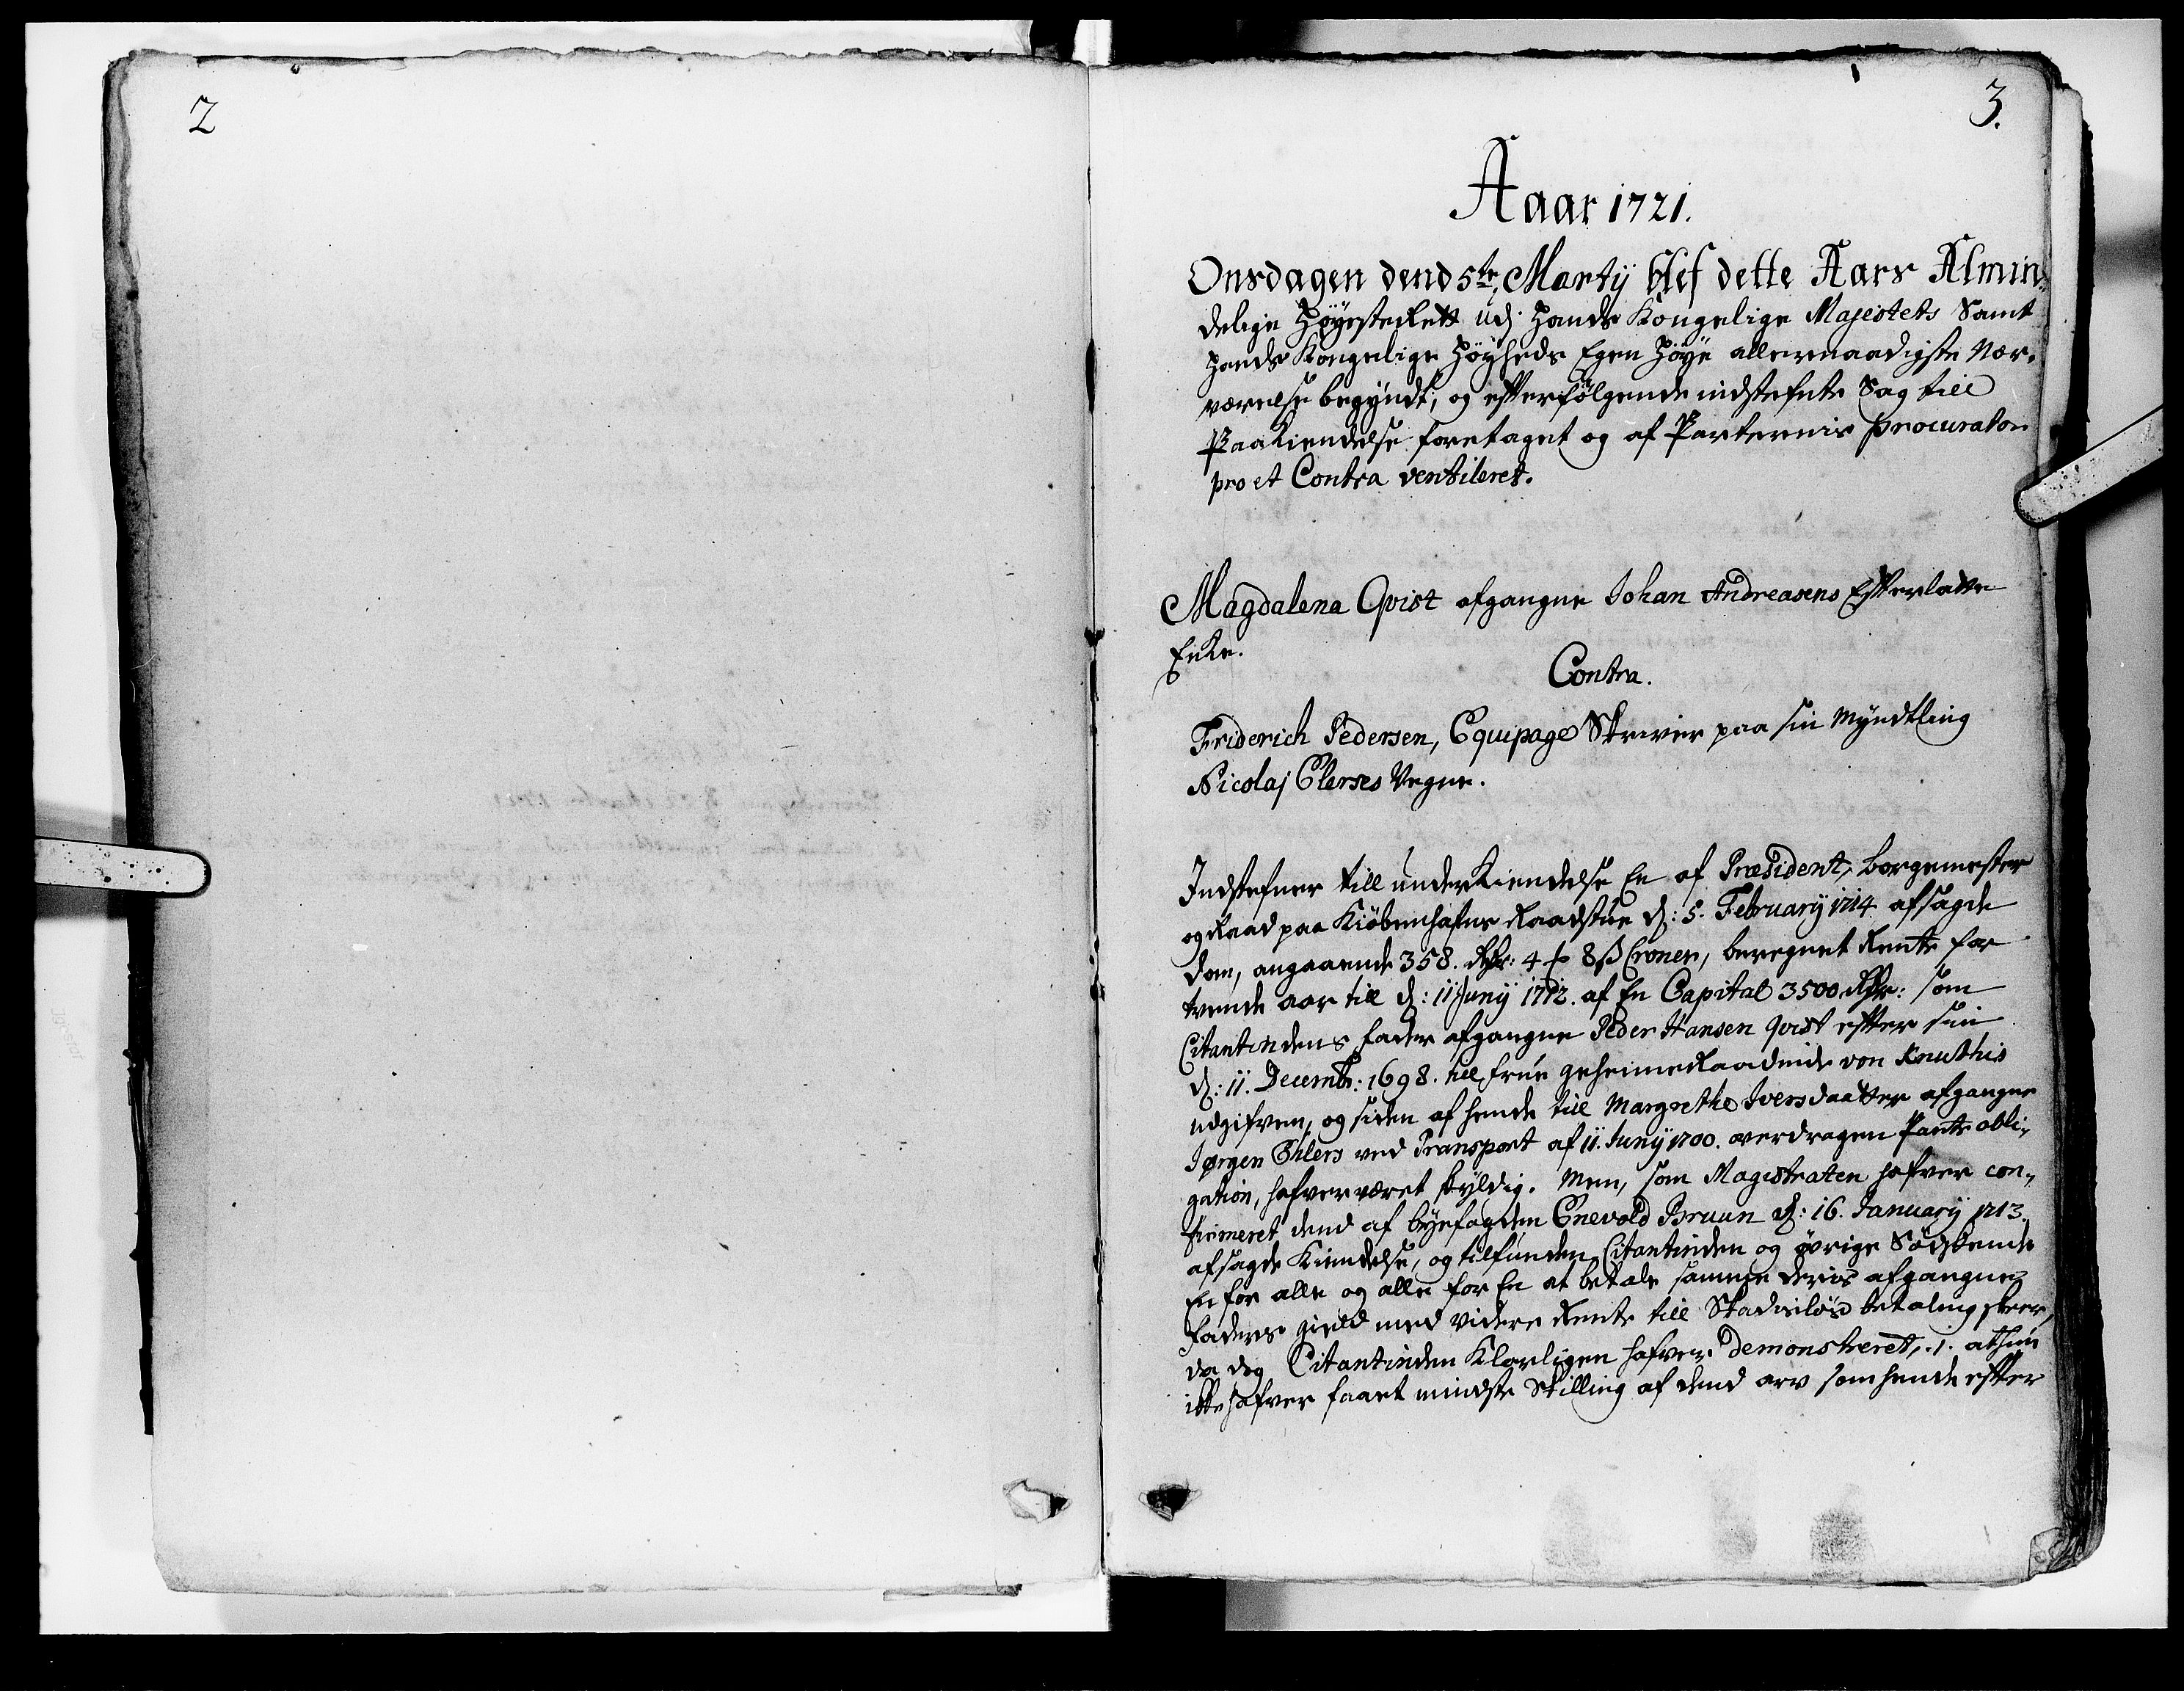 2
3.
Aaar 1721.
Onsdagen dend 5te Martij blef dette Aars Almin-
delige Høyesterett udj Hands Kongelige Majestets Samt
Hands Kongelige Høyheds Egen Høye allernaadigste Nær-
værelse begyndt, og efterfølgende indstefnte Sag till
PaaKiendelse foretaget og af Parternis procurator
pro et Contra ventileret.
Magdalena Qvist afgangne Johan Andreasens Efterlatte
Enke.
Contra.
Friderich Pedersen, Equipage Skriver paa sin Myndtling
Nicolaj Elerses Vegne.
Indstefner till underKiendelse En af Præsident, borgemester
og Raad paa Kiøbenhafns Raadstue d: 5. February 1714 afsagde
dom, angaaende 358. Rdr: 4 ₰ 8 ß Croner, beregnet Rente for
tvende aar till d: 11 Junij 1712. af En Capital 3500 Rdr: som
Citantindens fader afgangne Peder Hansen qvist efter sin
d: 11. Decembr: 1698. till frue geheimeRaadinde von Knuthis
udgifven, og siden af hende till Margrethe Iversdaatter afgangne
Jørgen Ehlers ved Transport af 11. Junij 1700. overdragen Pante obli-
gation, hafver været skyldig. Men, som Magistraten hafver con-
firmeret dend af byefogden Enevold Bruun d: 16. January 1713.
afsagde Kiendelse, og tilfunden Citantinden og øvrige Sødskende
En for alle og alle for En at betale samme deris afgangne
faders gield med videre Rente till Skadisløs betaling skeer,
da dog Citantinden Klarligen hafver demonstreret, 1. at hun
ikke hafver faaet mindste Skilling af dend arv som hende efter